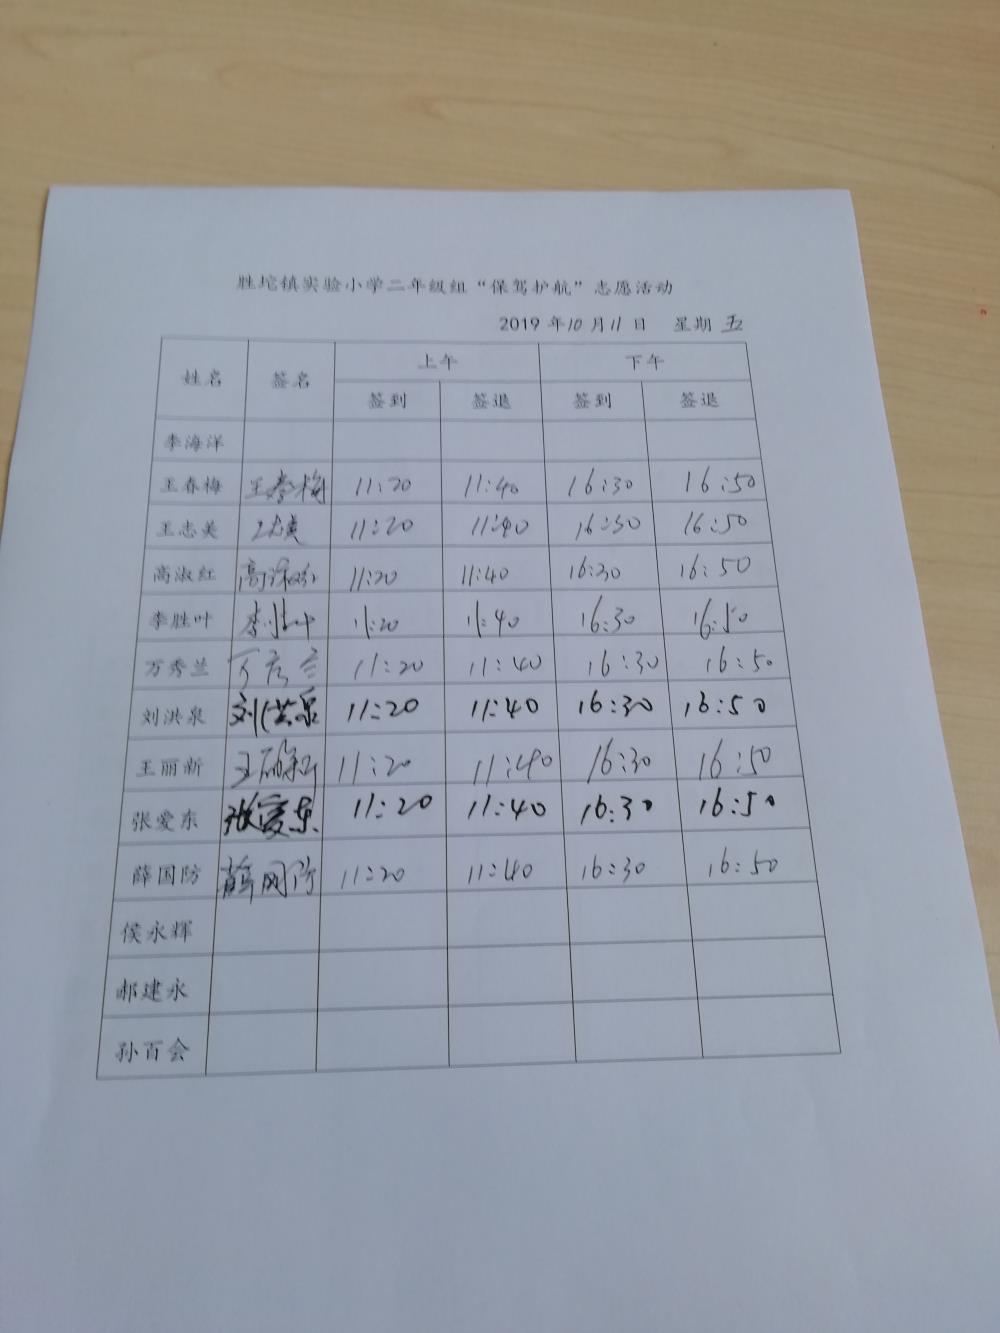 胜坨镇实验小学二年级组“保驾护航”志愿活动
2019 年 10 月 11 日 星期 五
姓名 签名 上午 下午
签到 签退 签到 签退
李海洋
王春梅 王春梅 11:20 11:40 16:30 16:50
王志美 王志美 11:20 11:40 16:30 16:50
高淑红 高淑红 11:20 11:40 16:30 16:50
李胜叶 李胜叶 11:20 11:40 16:30 16:50
万秀兰 万秀兰 11:20 11:40 16:30 16:50
刘洪泉 刘洪泉 11:20 11:40 16:30 16:50
王丽新 王丽新 11:20 11:40 16:30 16:50
张爱东 张爱东 11:20 11:40 16:30 16:50
薛国防 薛国防 11:20 11:40 16:30 16:50
侯永辉
郝建永
孙百会